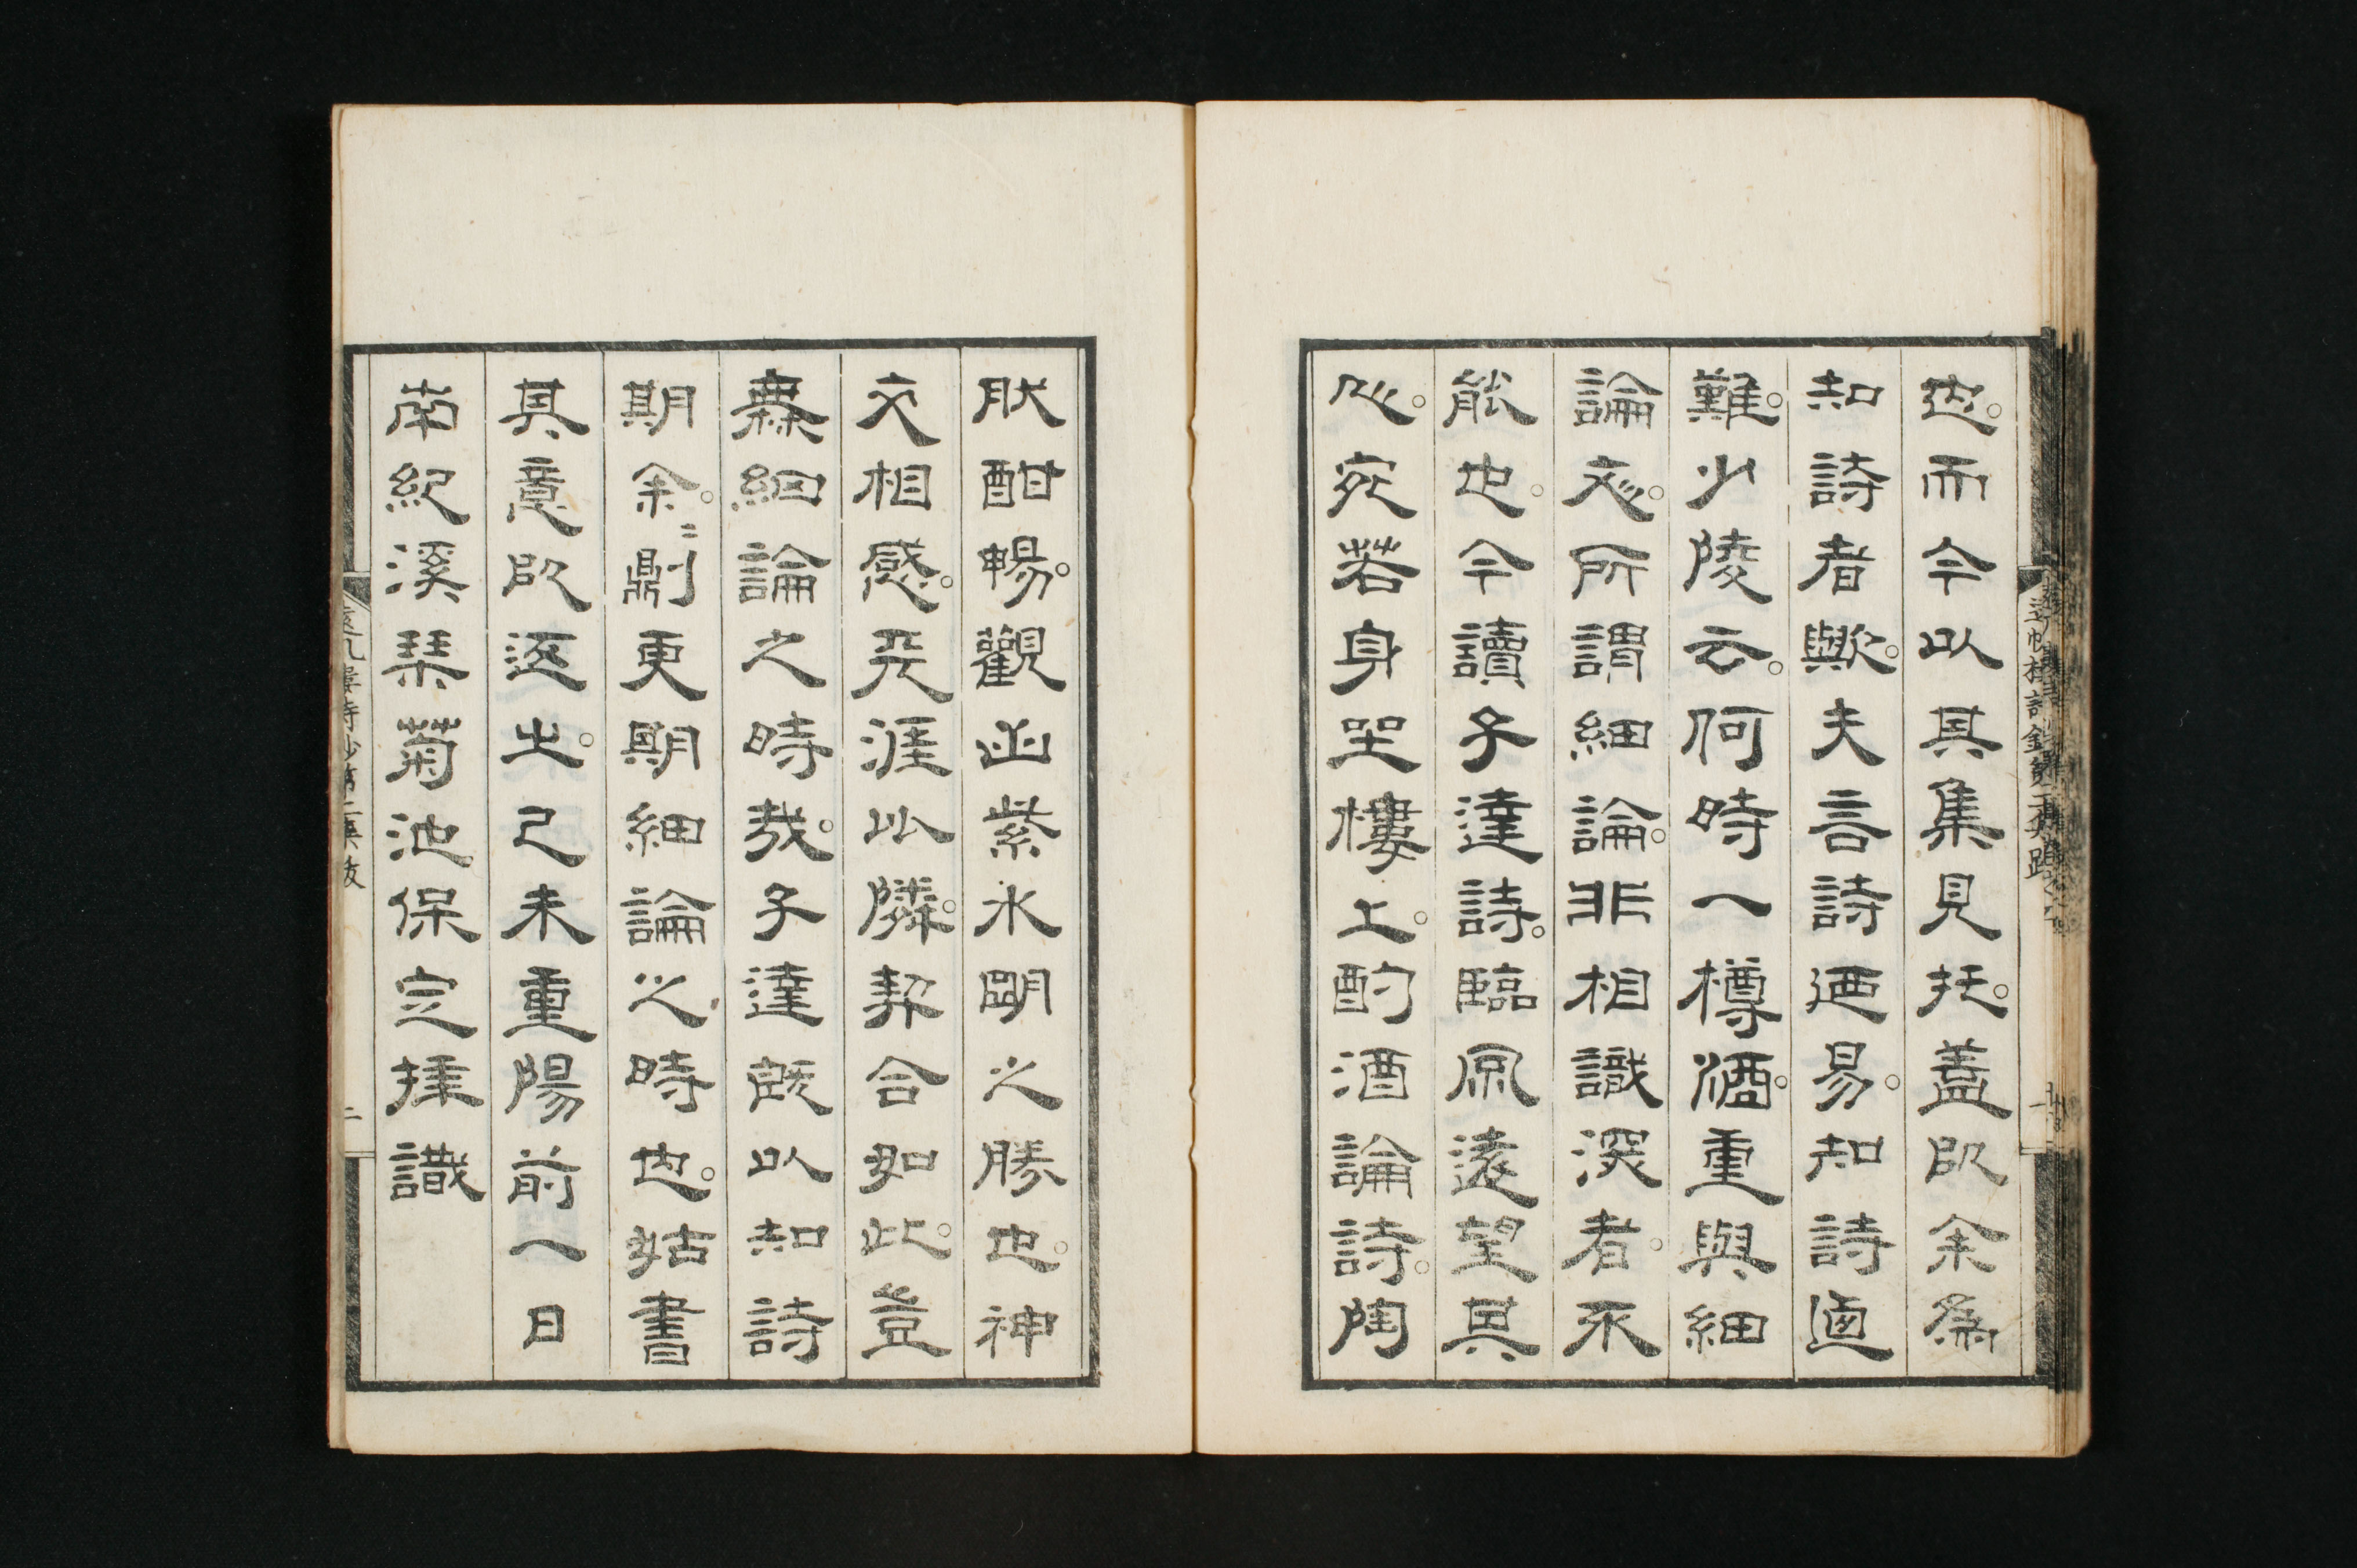 也。而今以其集見托。蓋即余為
知詩者歟。夫言詩迺易。知詩迺
難。少陵云。何時一樽酒。重與細
論文。所謂細論。非相識深者。不
能也。今讀子達詩。臨風遠望。其
人。宛若身坐樓上。酌酒論詩。陶
然酣暢。觀山紫水明之勝也。神
交相感。天涯比隣。契合如此。豈
無細論之時哉。子達既以知詩
期余。余則更期細論之時也。姑書
其意以返之。己未重陽前一日
南紀溪琴菊池保定拜識